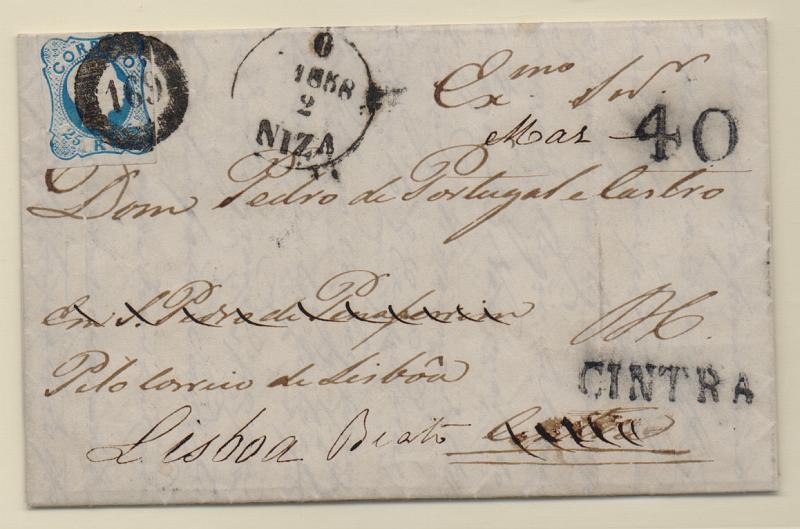 CORREIO
169
25 R
6
1858
2
NIZA
Exmo Snr.
Mar
40
Dom Pedro de Portugal e Castro
Em S. Pedro de
M.
Pelo Correio de Lisbôa
CINTRA
Lisboa Beato